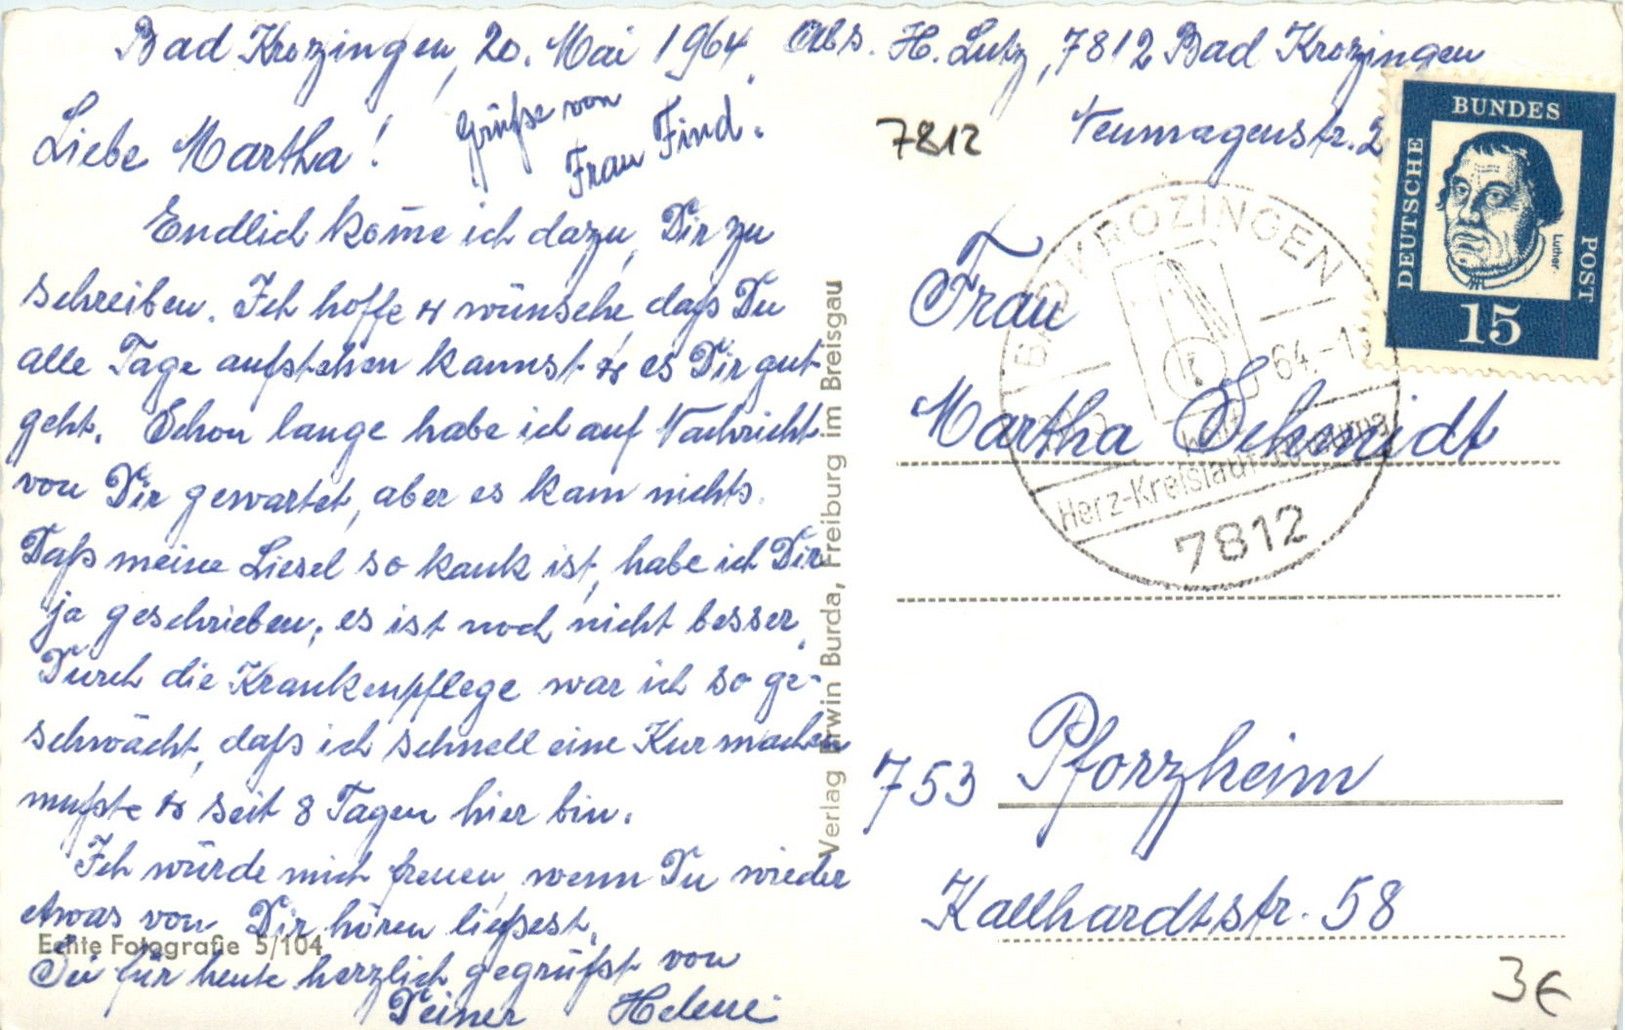 Bad Krozingen, 20. Mai 1964
Abs. H. Lutz, 7812 Bad Krozingen
Neumagenstr. 2
Grüße von
Frau Find.
Liebe Martha!
Endlich kom̄e ich dazu, Dir zu
schreiben. Ich hoffe & wünsche, daß Du
alle Tage aufstehen kannst & es Dir gut
geht. Schon lange habe ich auf Nachricht
von Dir gewartet, aber es kam nichts.
Daß meine Liesel so kank ist, habe ich Dir
ja geschrieben, es ist noch nicht besser.
Durch die Krankenpflege war ich so ge-
schwächt, daß ich schnell eine Kur machen
mußte & seit 8 Tagen hier bin.
Ich würde mich freuen, wenn Du wieder
etwas von Dir hören ließest.
Sei für heute herzlich gegrüßt von
Deiner Helene
Echte Fotografie 5/104
Verlag Erwin Burda, Freiburg im Breisgau
7812
DEUTSCHE
BUNDES
POST
Luther
15
BAD KROZINGEN
64.-1
heilt
Herz-Kreislauf-Rheuma
7812
Frau
Martha Schmidt
753 Pforzheim
Kallhardtstr. 58
3€